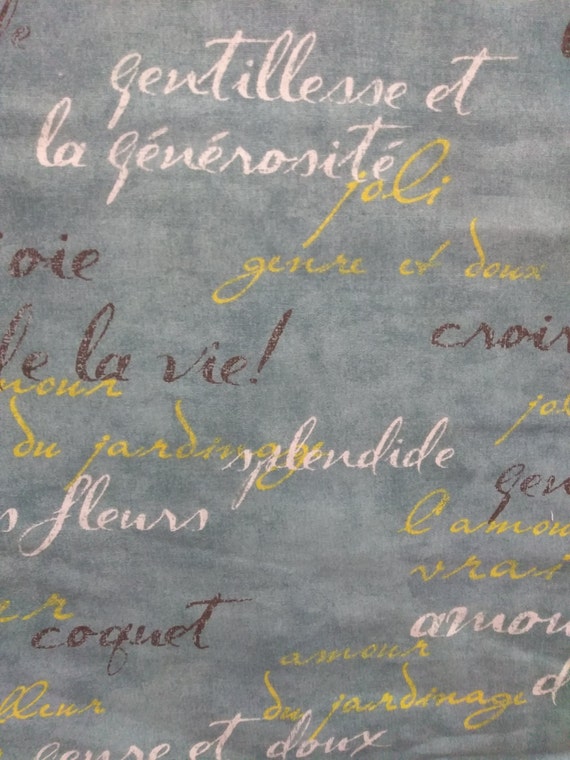 gentillesse et
la générosité
joli
genre et doux
joie
de la vie!
croir
amour
du jardinage
splendide
jol
gen
s fleurs
l'amou
vrai
er
coquet
amou
amour
du jardinage
d
lleur
genre et doux